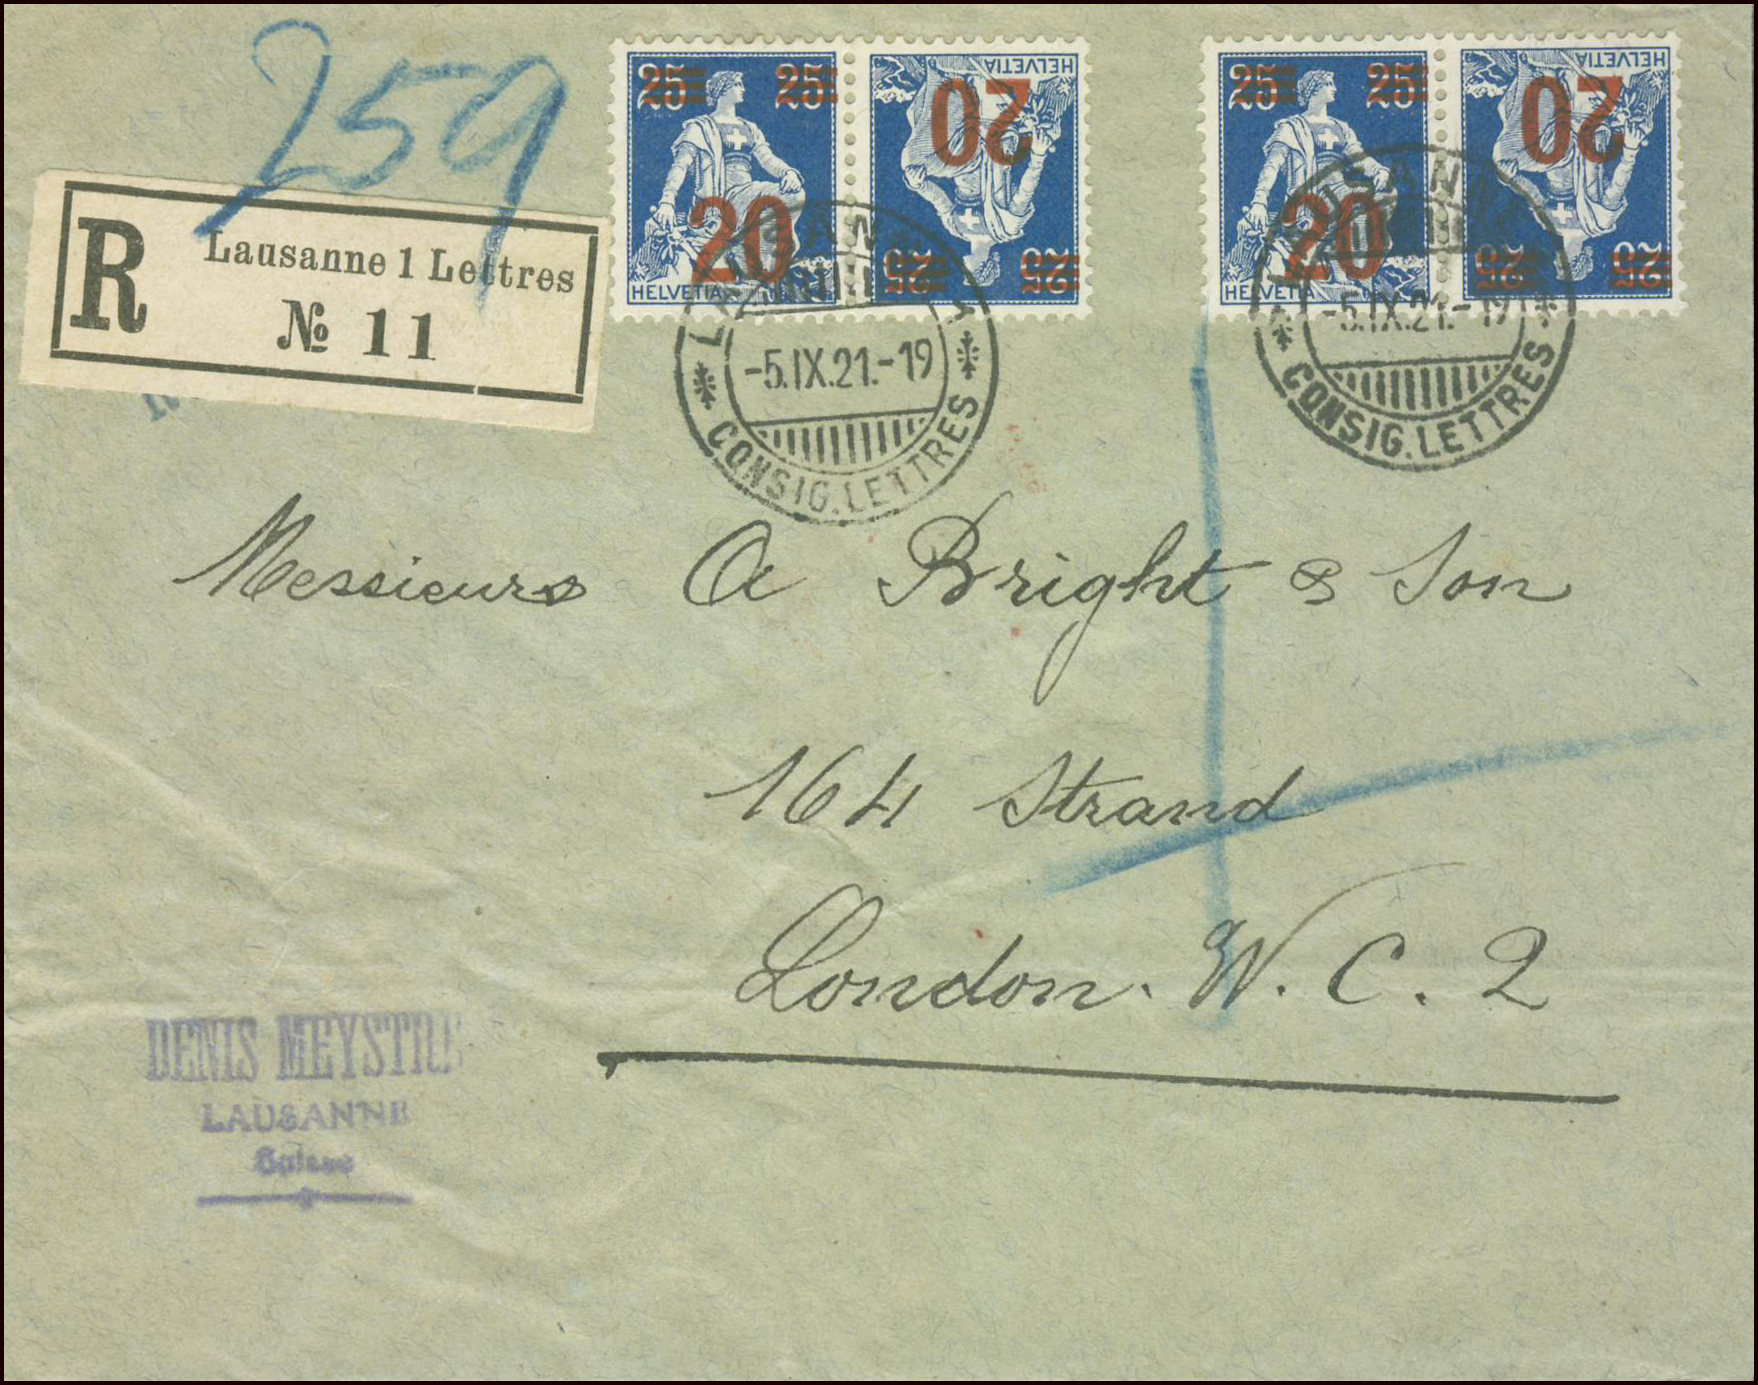 259
R Lausanne 1 Lettres
№ 11
25 25
20
HELVETIA
HELVETIA
20
25 25
25 25
20
HELVETIA
HELVETIA
20
25 25
LAUSANNE 1
-5.IX.21.-19
CONSIG.LETTRES
LAUSANNE 1
-5.IX.21.-19
CONSIG.LETTRES
Messieurs A Bright & Son
164 Strand
London. W. C. 2
DENIS MEYSTRE
LAUSANNE
Suisse